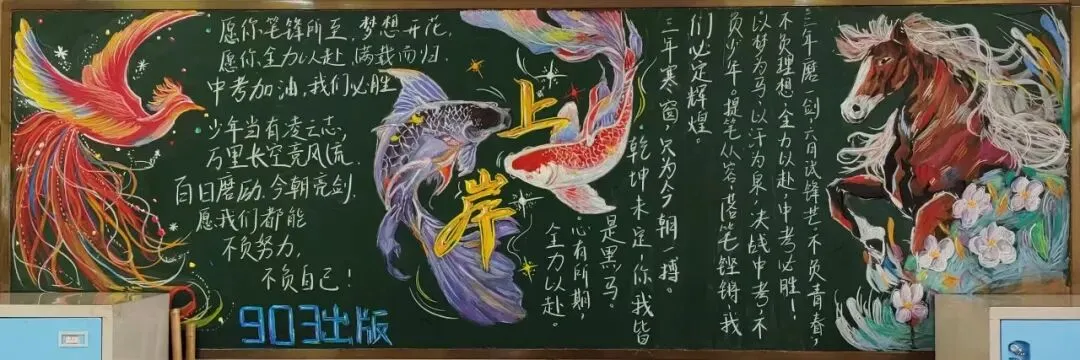 愿你笔锋所至,梦想开花,
愿你全力以赴 满载而归.
中考加油,我们必胜
少年当有凌云志,
万里长空竞风流.
百日磨励.今朝亮剑.
愿我们都能
不负努力,
不负自己!
903出版
上
岸
三年磨一剑,六月试锋芒.不负青春,
不负理想.全力以赴,中考必胜!
以梦为马,以汗为泉,决战中考,不
负少年。提笔从容,落笔铿锵,我
们必定辉煌。
三年寒窗,只为今朝一搏。
乾坤未定,你我皆
是黑马。
心有所期,
全力以赴。